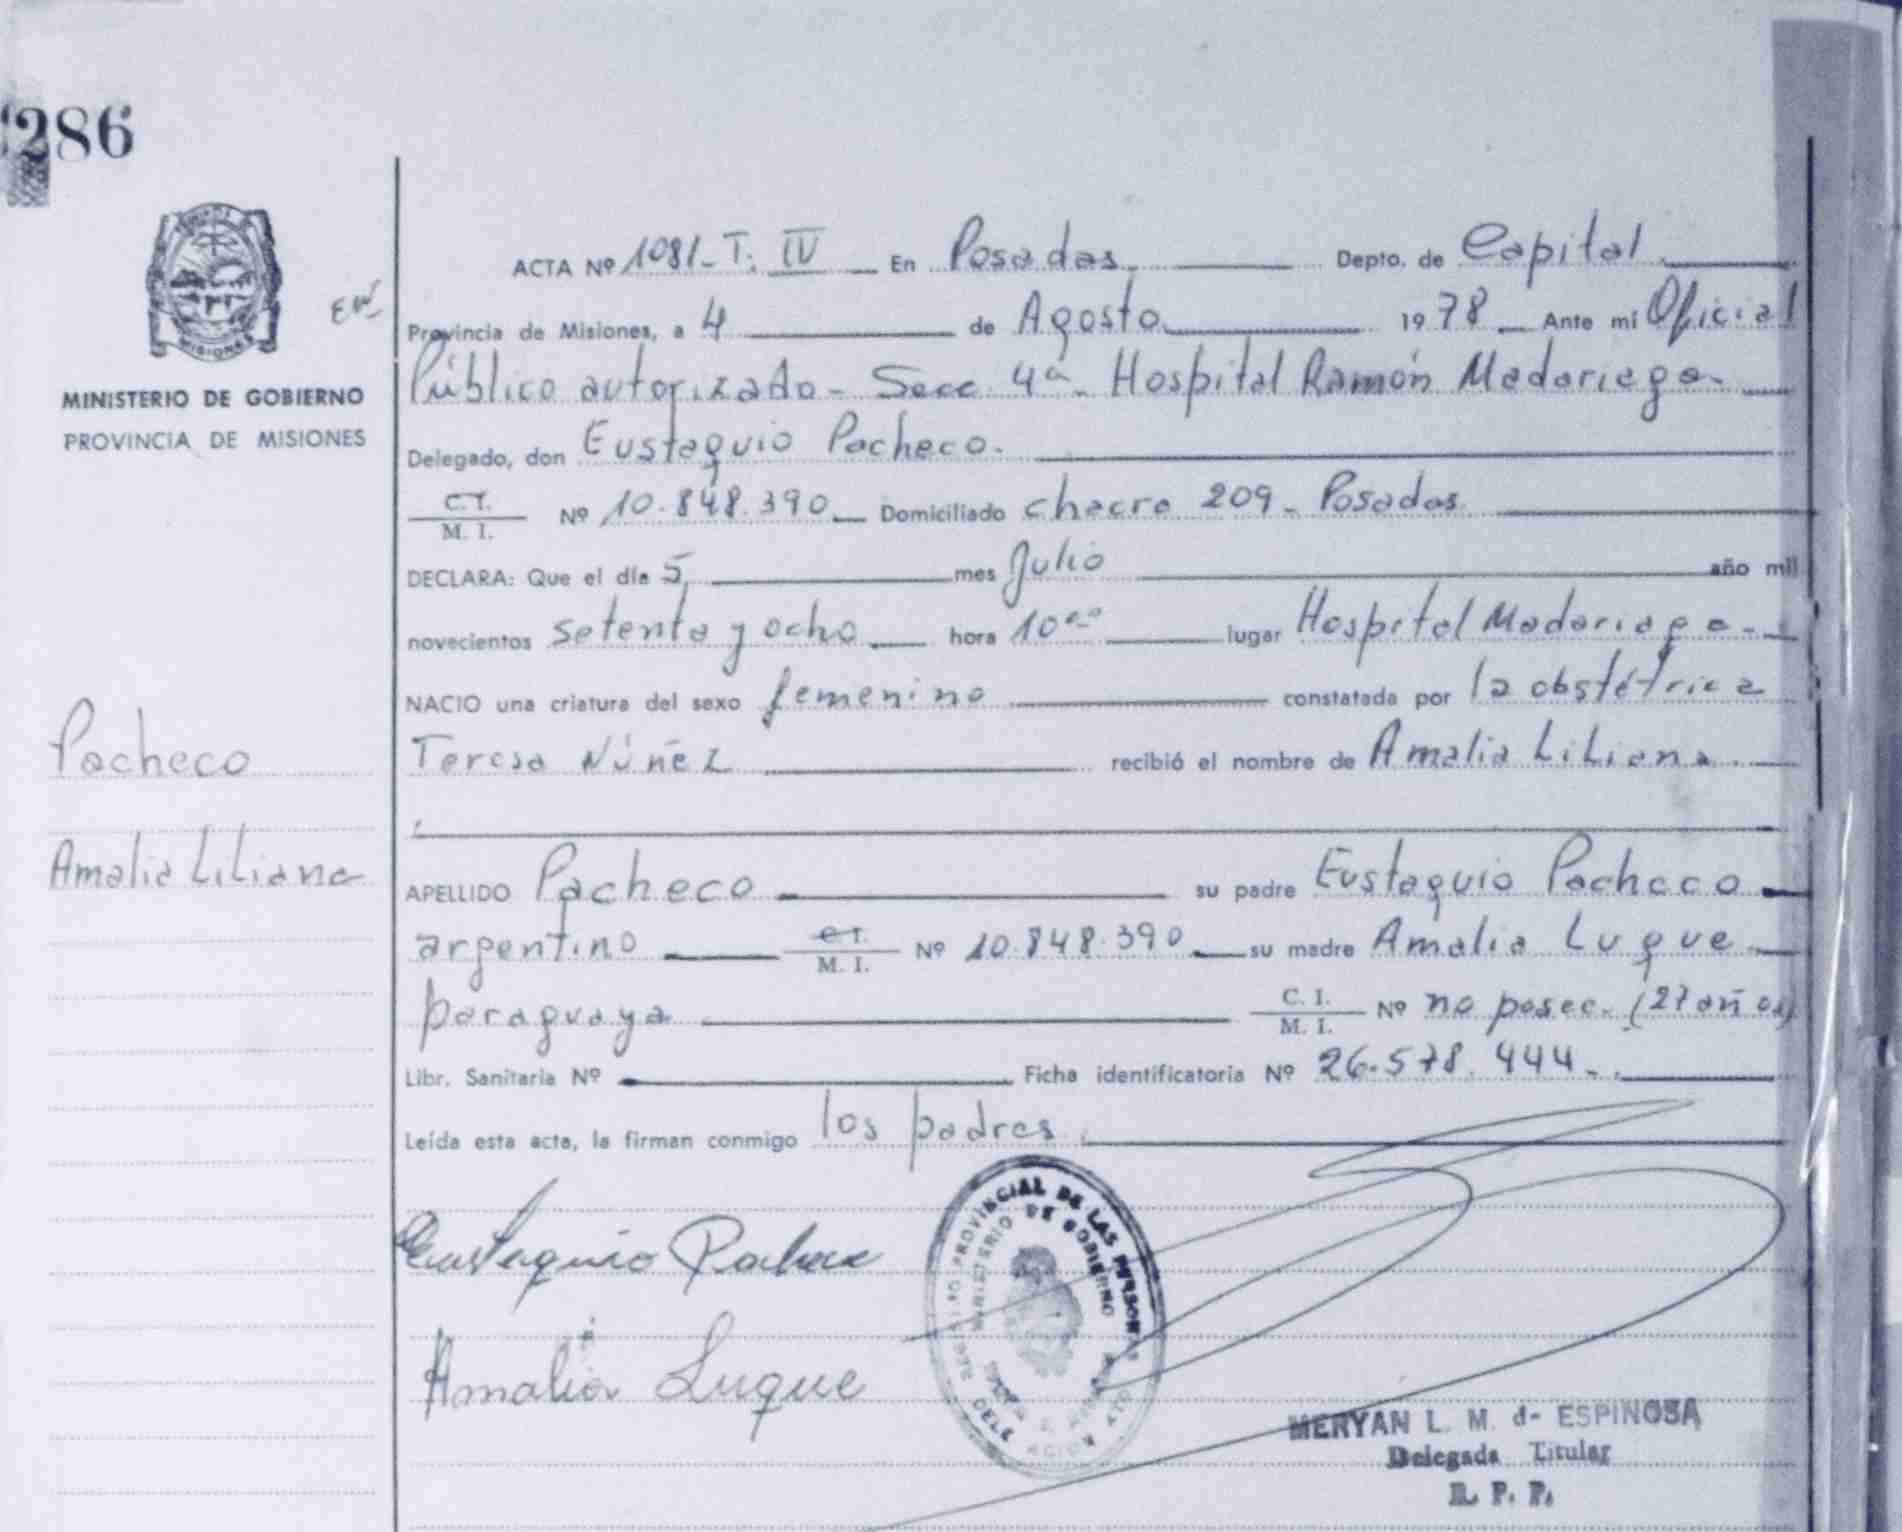 286
MISIONES
MINISTERIO DE GOBIERNO
PROVINCIA DE MISIONES
ACTA Nº 1081-T. IV En Posadas. Depto. de Capital
Provincia de Misiones, a 4 de Agosto 1978 Ante mi Oficial
Público autorizado - Secc 4ª - Hospital Ramón Madariaga -
Delegado, don Eustaquio Pacheco.
C.I. / M. I. Nº 10.848.390 Domiciliado chacra 209 - Posadas
DECLARA: Que el día 5 mes Julio año mil
novecientos setenta y ocho hora 10 lugar Hospital Madariaga -
NACIO una criatura del sexo femenino constatada por la obstétrica
Teresa Núñez recibió el nombre de Amalia Liliana
Pacheco
Amalia Liliana
APELLIDO Pacheco su padre Eustaquio Pacheco
argentino C.I. / M. I. Nº 10.848.390 su madre Amalia Luque
paraguaya C. I. / M. I. Nº no posee. (27 años)
Libr. Sanitaria Nº Ficha identificatoria Nº 26.578.444 -
Leída esta acta, la firman conmigo los padres
Eustaquio Pacheco
Amalia Luque
PROVINCIAL DE LAS PERSONAS
MINISTERIO DE GOBIERNO
MERYAN L. M. d- ESPINOSA
Delegada Titular
R. P. P.